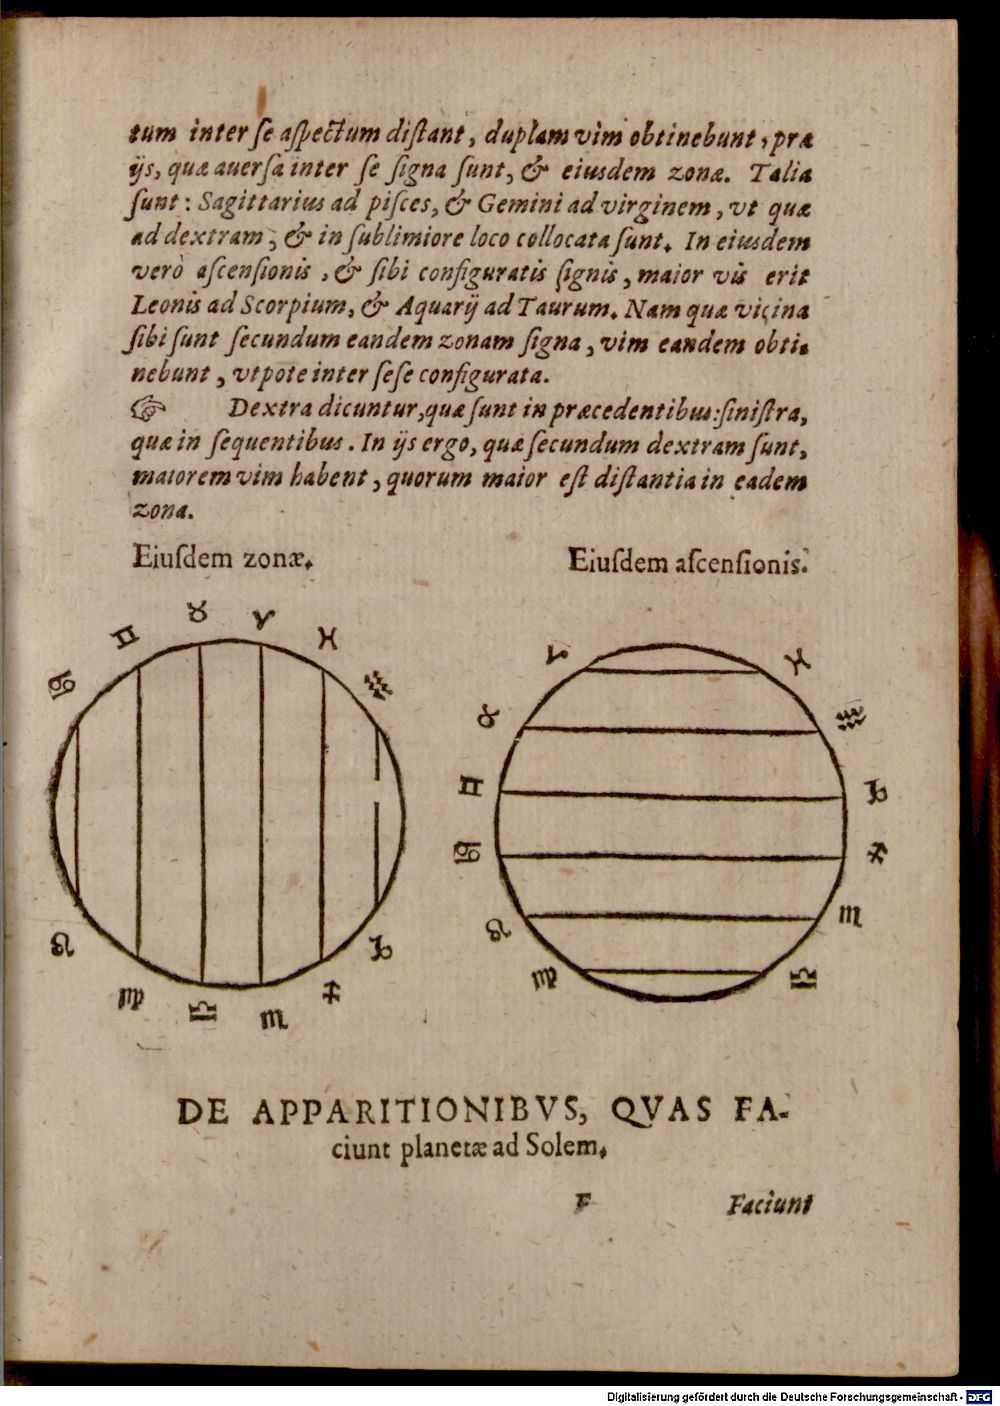 tum inter ſe aſpectum diſtant, duplam vim obtinebunt, præ
ijs, quæ auerſa inter ſe ſigna ſunt, & eiusdem zonæ. Talia
ſunt: Sagittarius ad piſces, & Gemini ad virginem, vt quæ
ad dextram, & in ſublimiore loco collocata ſunt. In eiusdem
verò aſcenſionis, & ſibi configuratis ſignis, maior vis erit
Leonis ad Scorpium, & Aquarij ad Taurum. Nam quæ vicina
ſibi ſunt ſecundum eandem zonam ſigna, vim eandem obti-
nebunt, vtpote inter ſeſe configurata.
☞ Dextra dicuntur, quæ ſunt in præcedentibus: ſiniſtra,
quæ in ſequentibus. In ijs ergo, quæ ſecundum dextram ſunt,
maiorem vim habent, quorum maior eſt diſtantia in eadem
zona.
Eiuſdem zonæ.
Eiuſdem aſcenſionis.
♉ ♈ ♓
♊ ♒
♋
♌ ♑
♍ ♎ ♏ ♐
♈ ♓
♉ ♒
♊ ♑
♋ ♐
♌ ♏
♍ ♎
DE APPARITIONIBVS, QVAS FA-
ciunt planetæ ad Solem.
F Faciunt
Digitalisierung gefördert durch die Deutsche Forschungsgemeinschaft - DFG